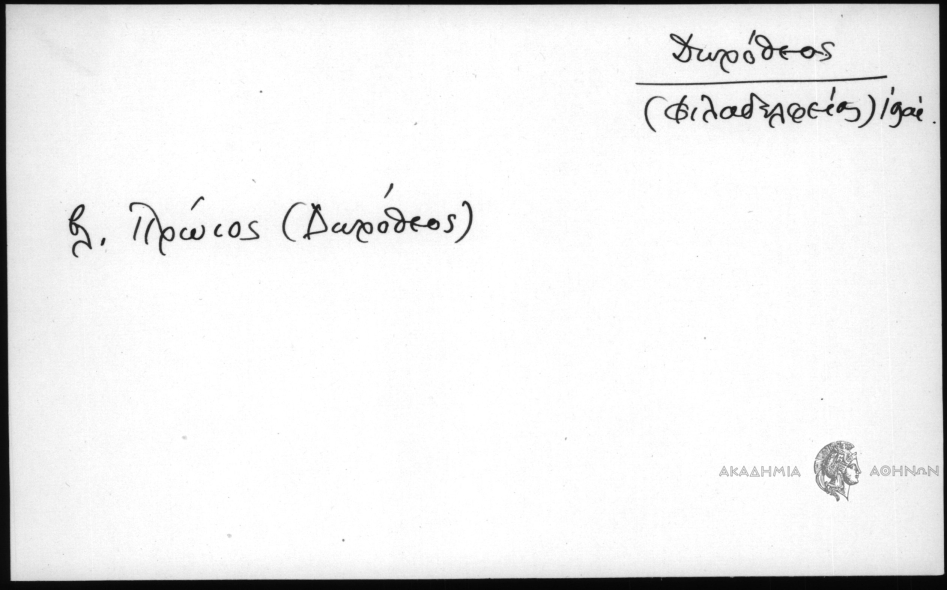 Δωρόθεος
(Φιλαδελφείας)
βλ. Πρώιος (Δωρόθεος)
ΑΚΑΔΗΜΙΑ ΑΘΗΝΩΝ